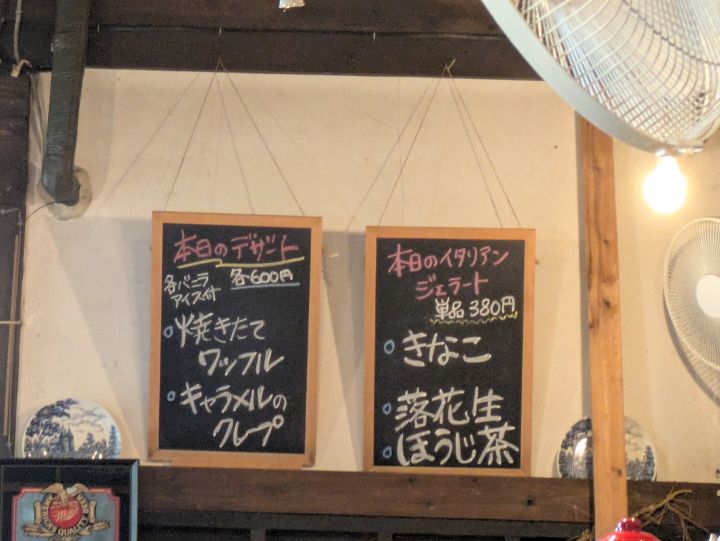 本日のデザート
各バニラ
アイス付
各600円
焼きたて
ワッフル
キャラメルの
クレープ
本日のイタリアン
ジェラート
単品380円
きなこ
落花生
ほうじ茶
Miller